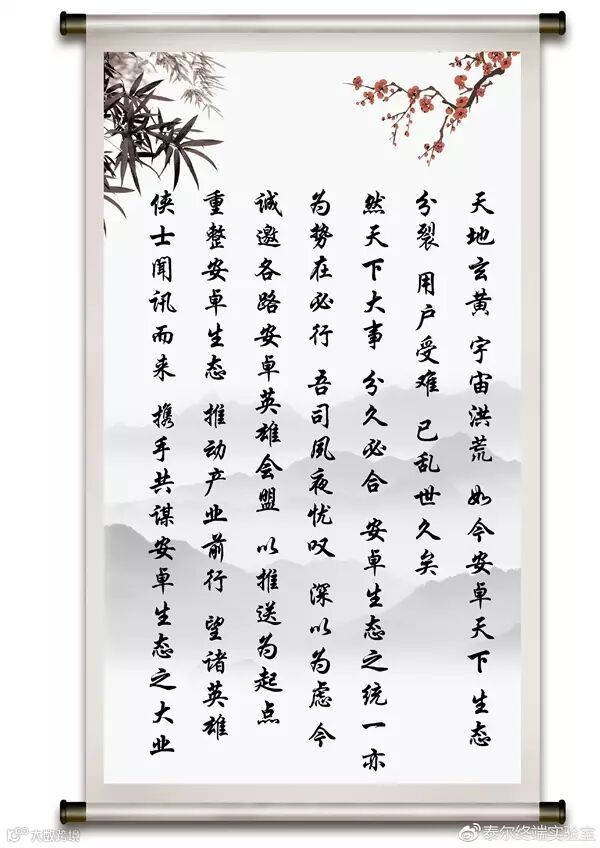 天地玄黄 宇宙洪荒 如今安卓天下 生态
分裂 用户受难 已乱世久矣
然天下大事 分久必合 安卓生态之统一亦
为势在必行 吾司夙夜忧叹 深以为虑 今
诚邀各路安卓英雄会盟 以推送为起点
重整安卓生态 推动产业前行 望诸英雄
侠士闻讯而来 携手共谋安卓生态之大业
大数跨境
泰尔终端实验室